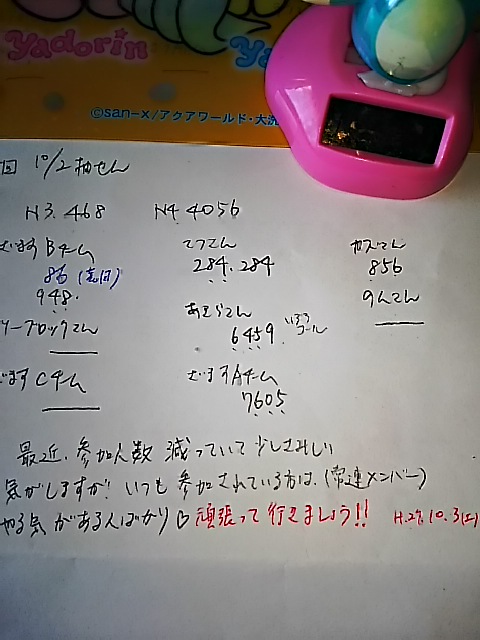 yadorin
©san-x/アクアワールド・大洗
回 10/2 抽せん
N3. 468 N4. 4056
むますBチーム
86
948.
ブロックてん
むますCチーム
てつてん
284. 284
6459
むますAチーム
7605
856
のんてん
最近、参加人数 減っていて少しさみしい
気がしますが! いつも 参加されている方は、(常連メンバー)
やる気がある人ばかり♡頑張って 行きましょう!!
H.27.10.3(土)